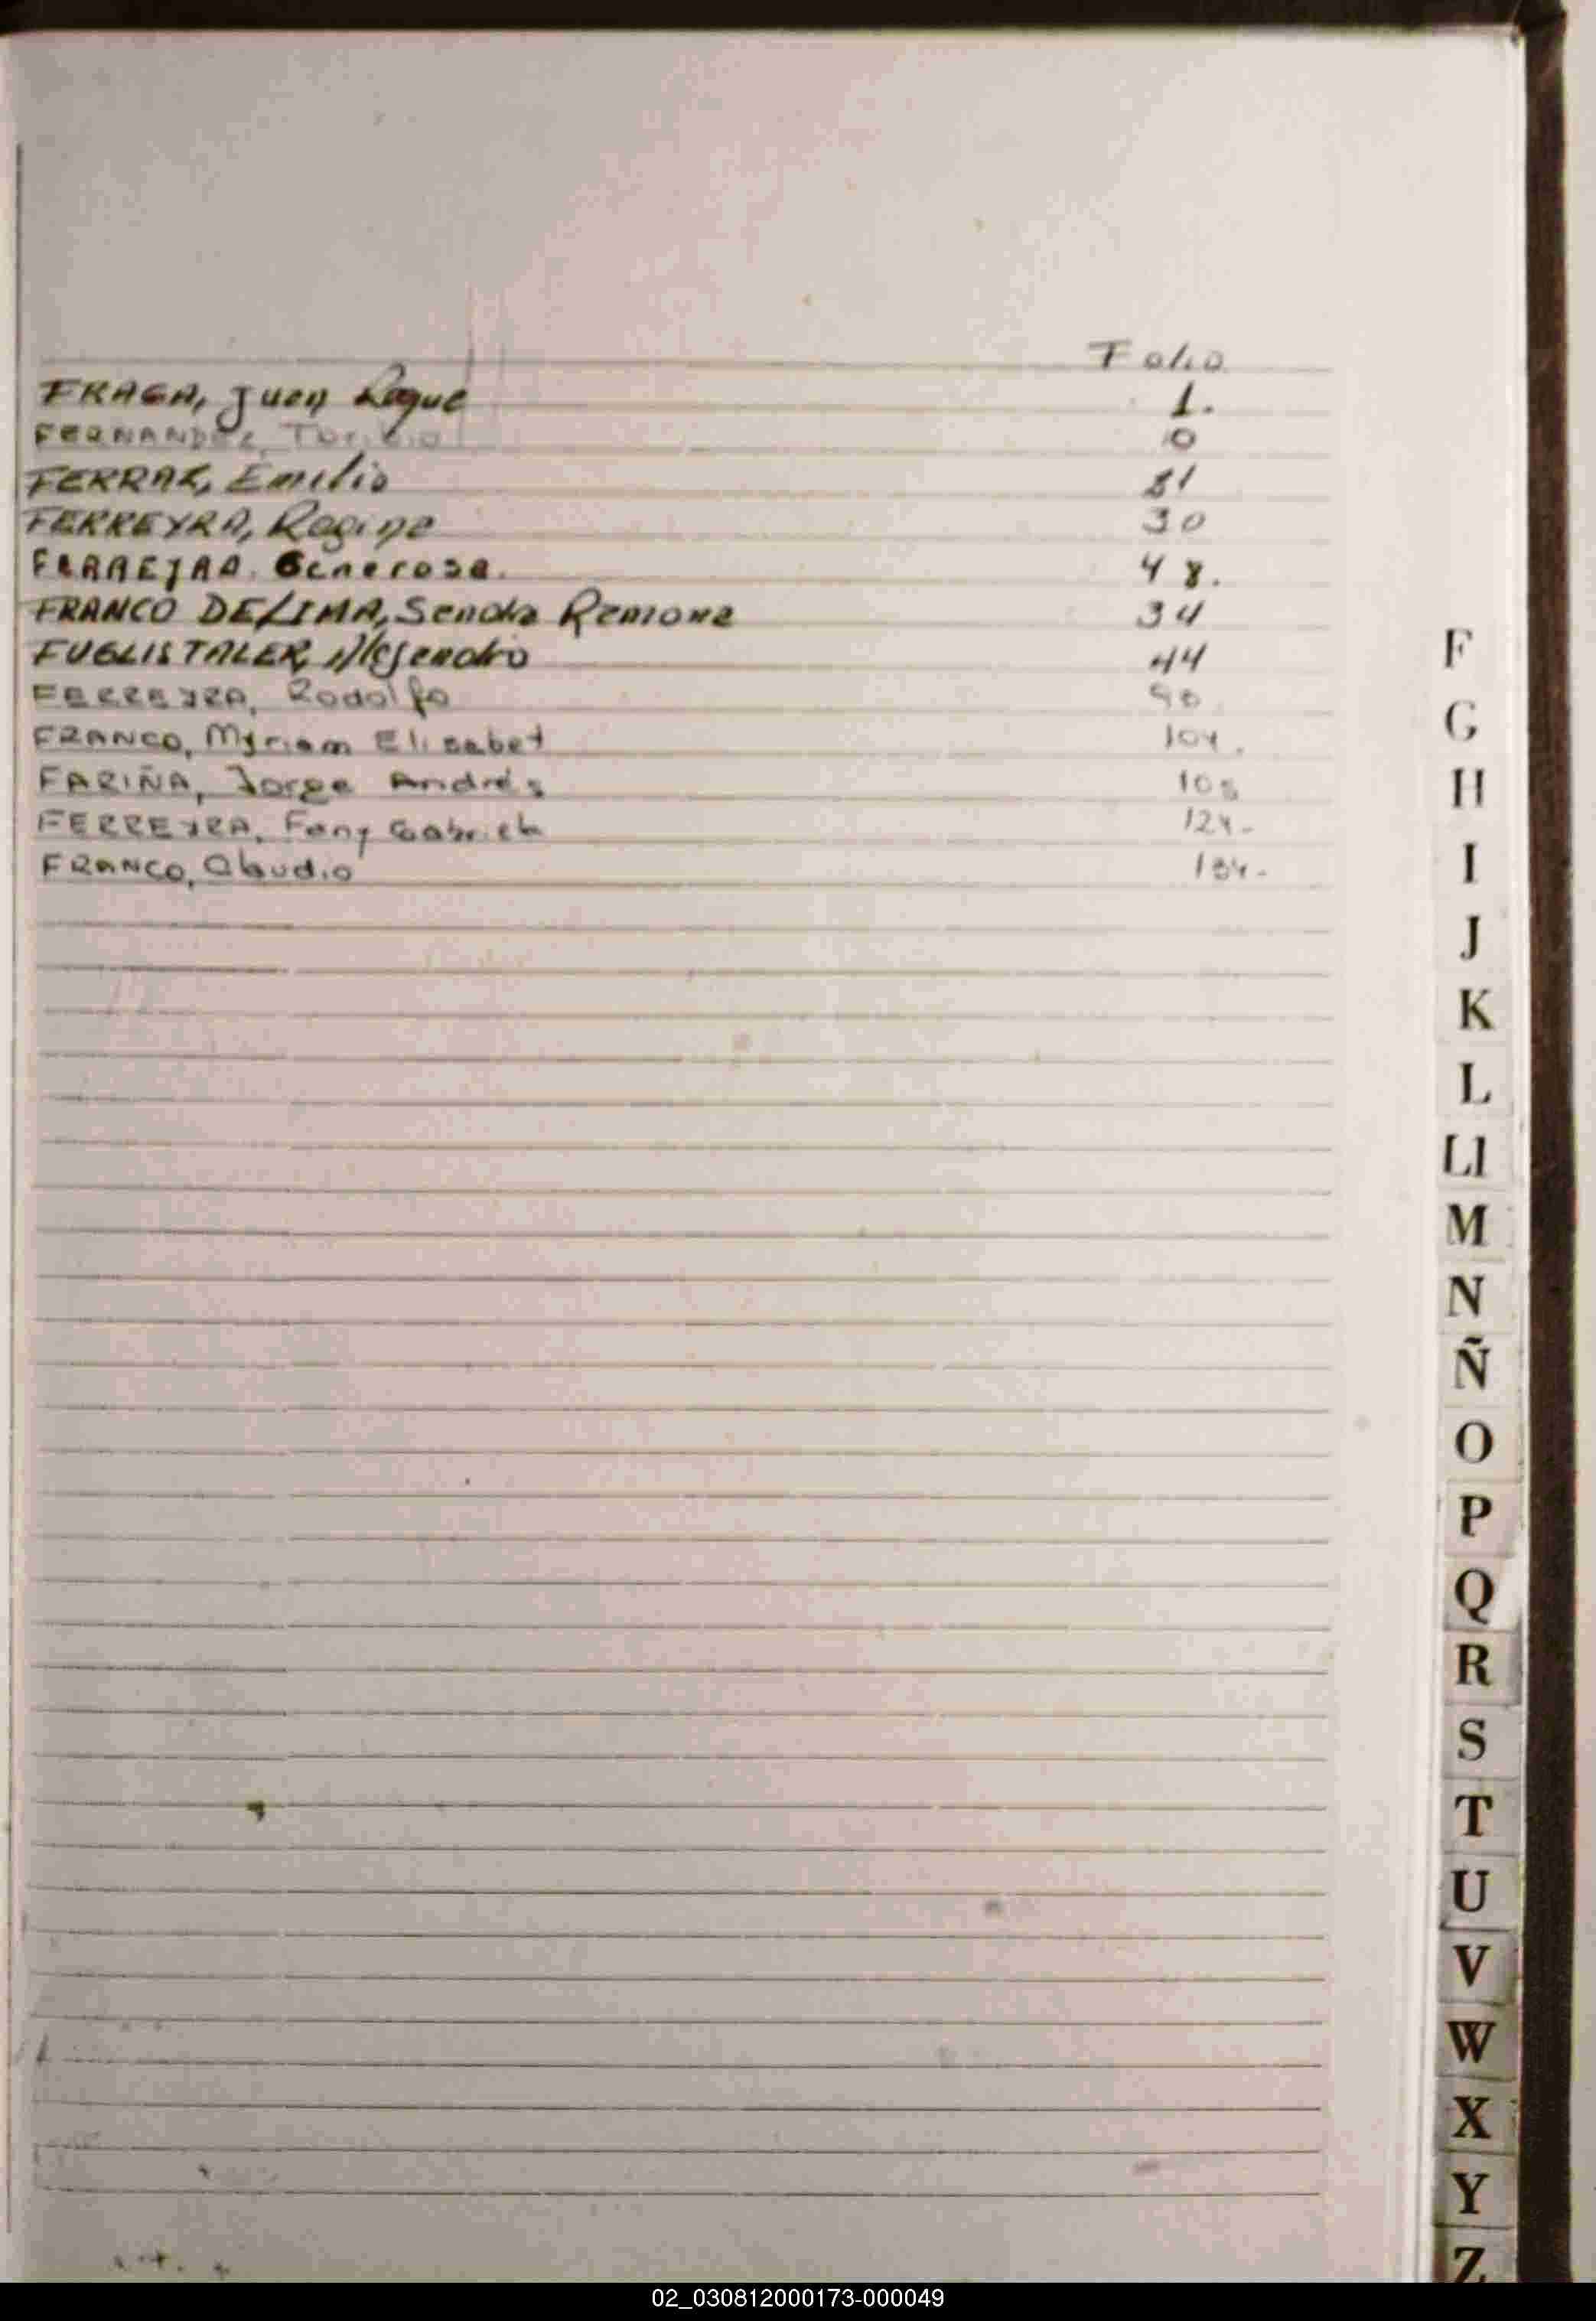 Folio
FRAGA, Juan Roque 1.
FERNANDEZ, Toribio 10
FERRAZ, Emilio
FERREYRA, Regina 30
FERREYRA. Generosa. 48.
FRANCO DELIMA, Sandra Ramona 34
FUGLISTALER, Alejandro 44
FERREYRA, Rodolfo
FRANCO, Myriam Elisabet 104.
FARIÑA, Jorge Andrés 105
FERREYRA, Fany Gabriela 124-
FRANCO, Claudio 134-
F
G
H
I
J
K
L
Ll
M
N
Ñ
O
P
Q
R
S
T
U
V
W
X
Y
Z
02_030812000173-000049